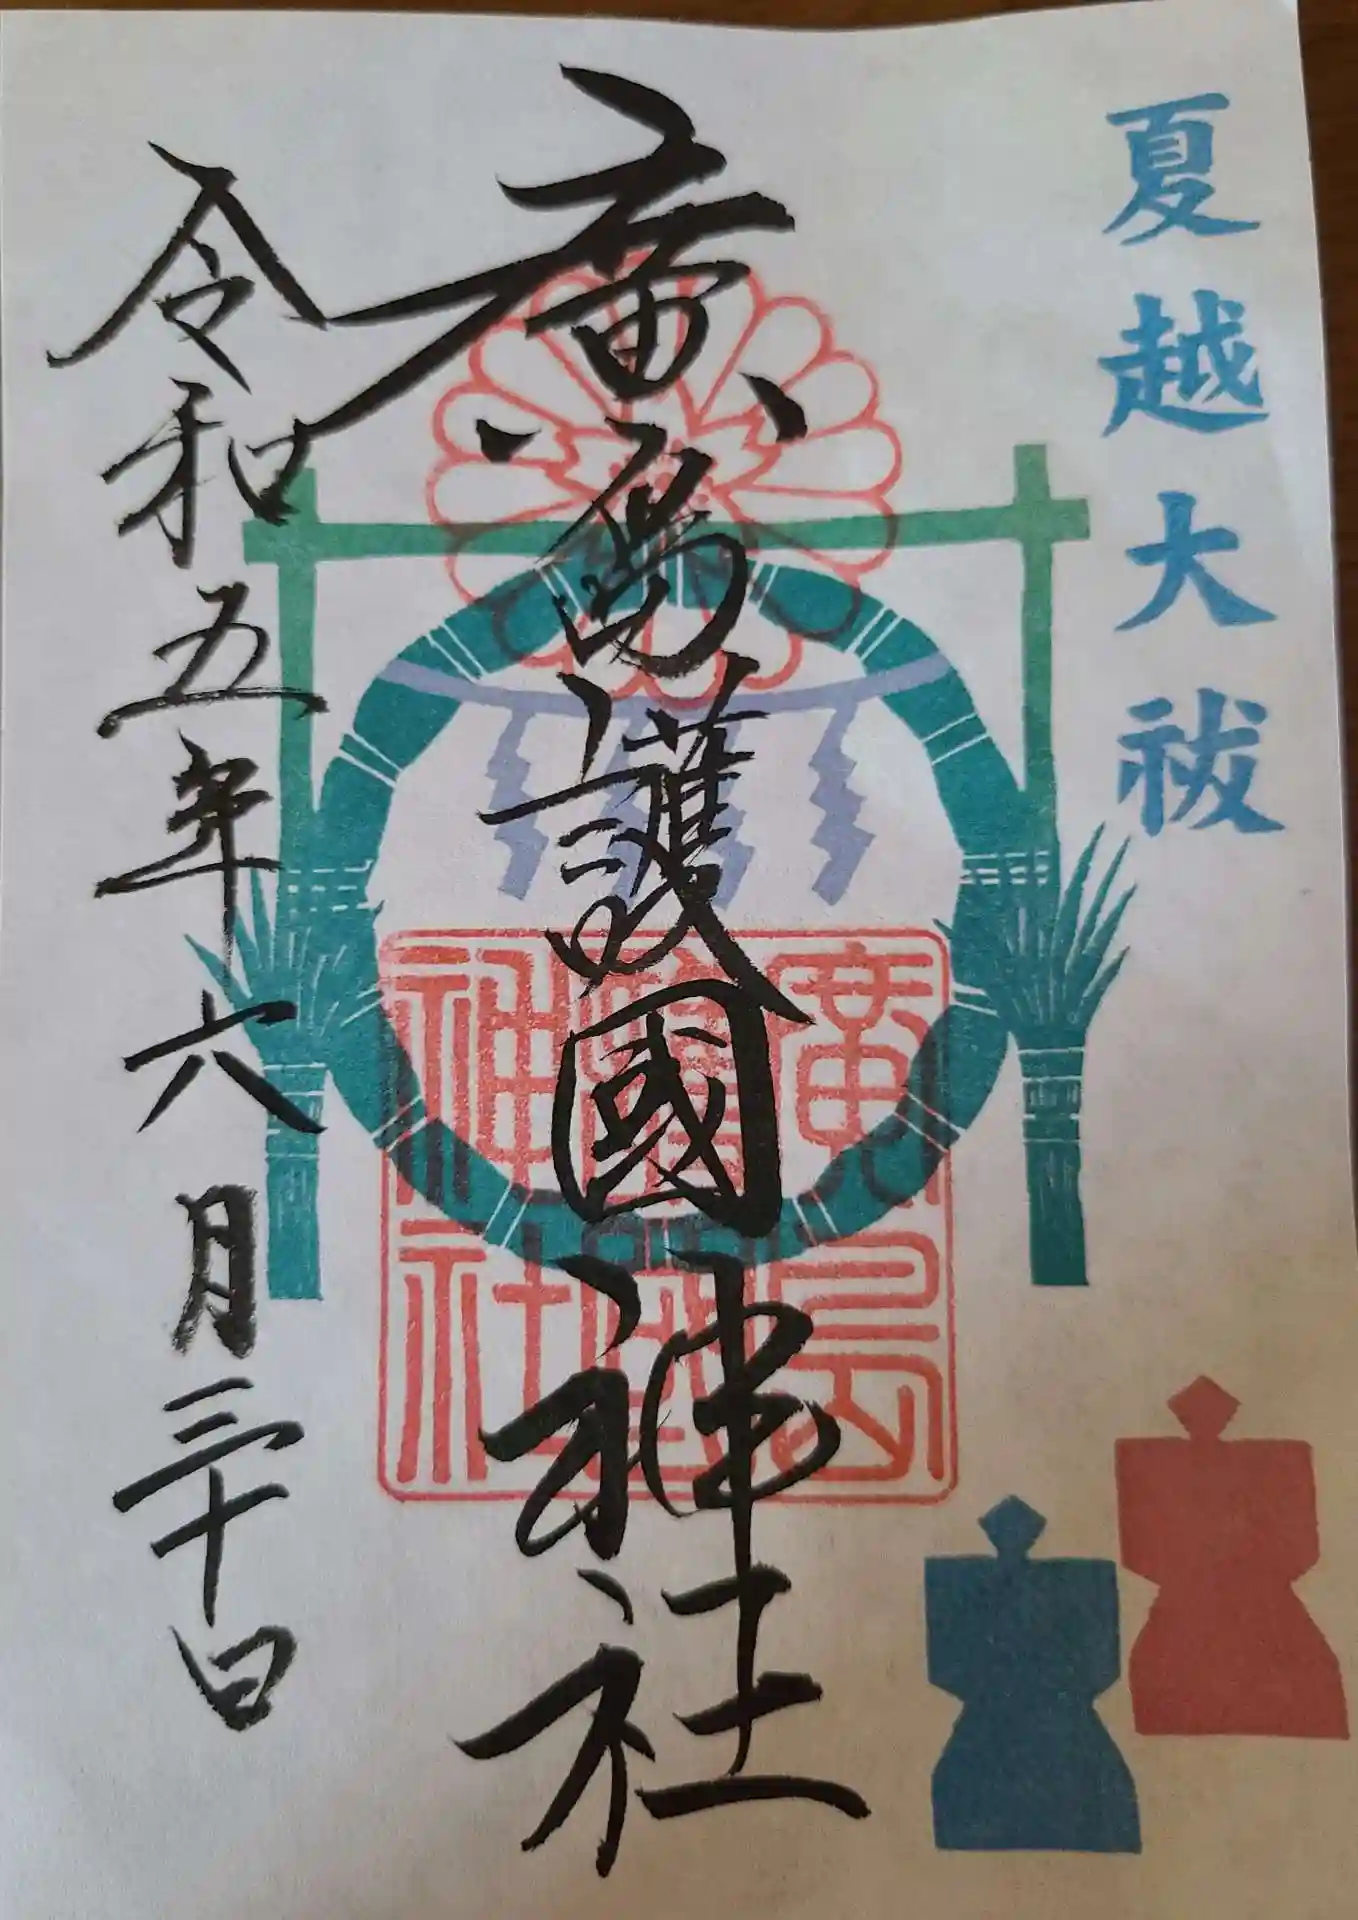 夏越大祓
廣島護國神社
廣島護國神社
令和五年六月三十日